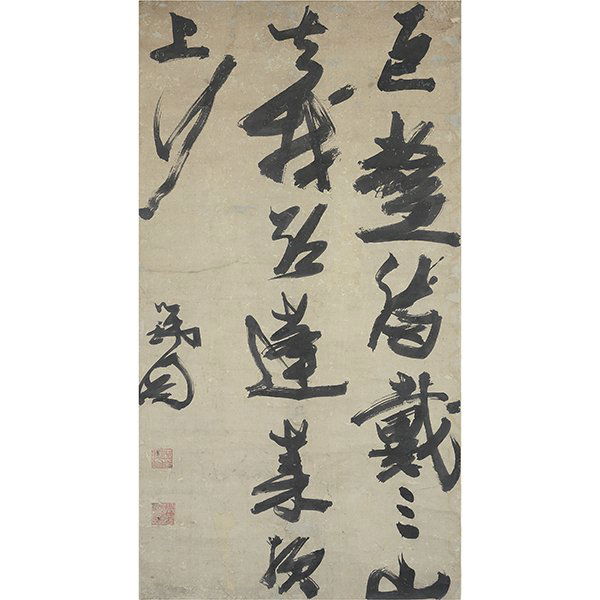 巨鼇戴三山
去我欲蓬萊頂
上行
瑞圖